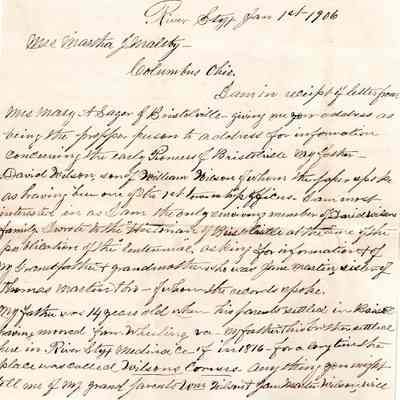 River Styx Jan 1st-1906
Mrs Martha J Maltby-
Columbus Ohio.
I am in receipt of letter from
Mrs Mary A Eager of Bristolville giving me your address as
being the propper person to address for information
concerning the early Pioneers of Bristolville My father-
David Wilson, son of William Wilson of whom the paper spoke
as having been one of the 1st township officers. I am most
interested in as I am the only surviving member of David Wilsons
family I wrote to the Historian of Bristolville at the time of the
publication of the Centennial, asking for information of
My Grandfather & grandmother who was Jane Martin, sister of
Thomas Martin of whom the records spoke.
My father was 14 years old when his parents settled in
having moved from Wheeling va - my father & his brother settled
here in River Styx Medina Co in 1816 - for a long time the
place was called Wilsons Corners. Any thing you might
tell me of my grand parents Wm Wilson & Jane Martin Wilson, will